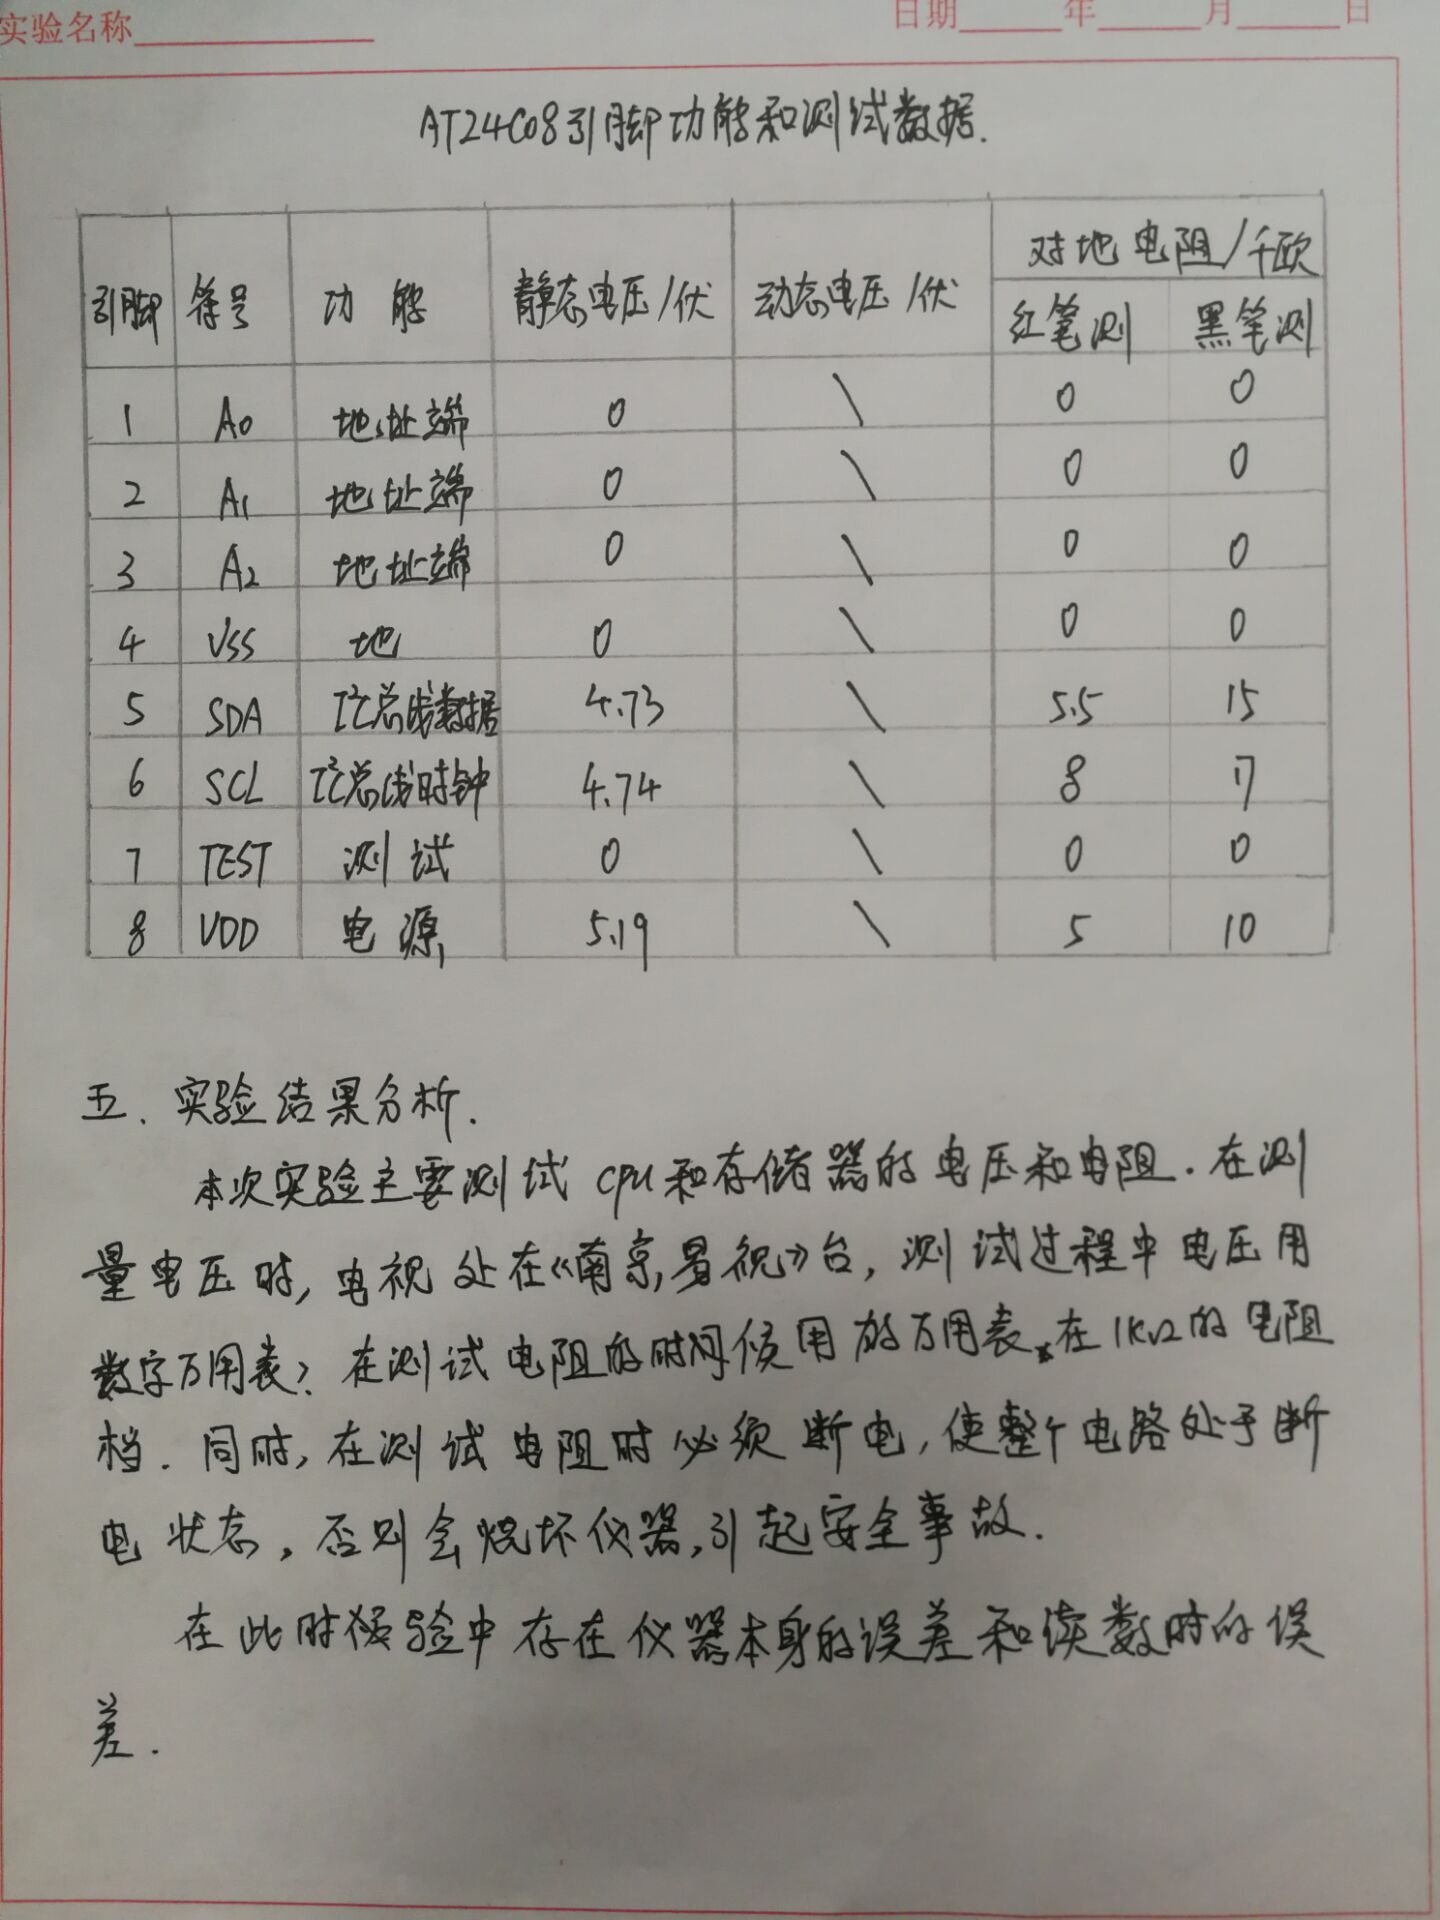 实验名称 日期 年 月 日
AT24C08引脚功能和测试数据.
引脚 符号 功能 静态电压/伏 动态电压/伏 对地电阻/千欧
红笔测 黑笔测
1 A0 地址端 0 \ 0 0
2 A1 地址端 0 \ 0 0
3 A2 地址端 0 \ 0 0
4 VSS 地 0 \ 0 0
5 SDA I²C总线数据 4.73 \ 5.5 15
6 SCL I²C总线时钟 4.74 \ 8 17
7 TEST 测试 0 \ 0 0
8 VDD 电源 5.19 \ 5 10
五.实验结果分析.
本次实验主要测试CPU和存储器的电压和电阻.在测
量电压时,电视处在《南京影视》台,测试过程中电压用
数字万用表;在测试电阻的时候用 万用表 在1KΩ的电阻
档.同时,在测试电阻时必须断电,使整个电路处于断
电状态,否则会烧坏仪器,引起安全事故.
在此 验中存在仪器本身的误差和读数时的误
差.